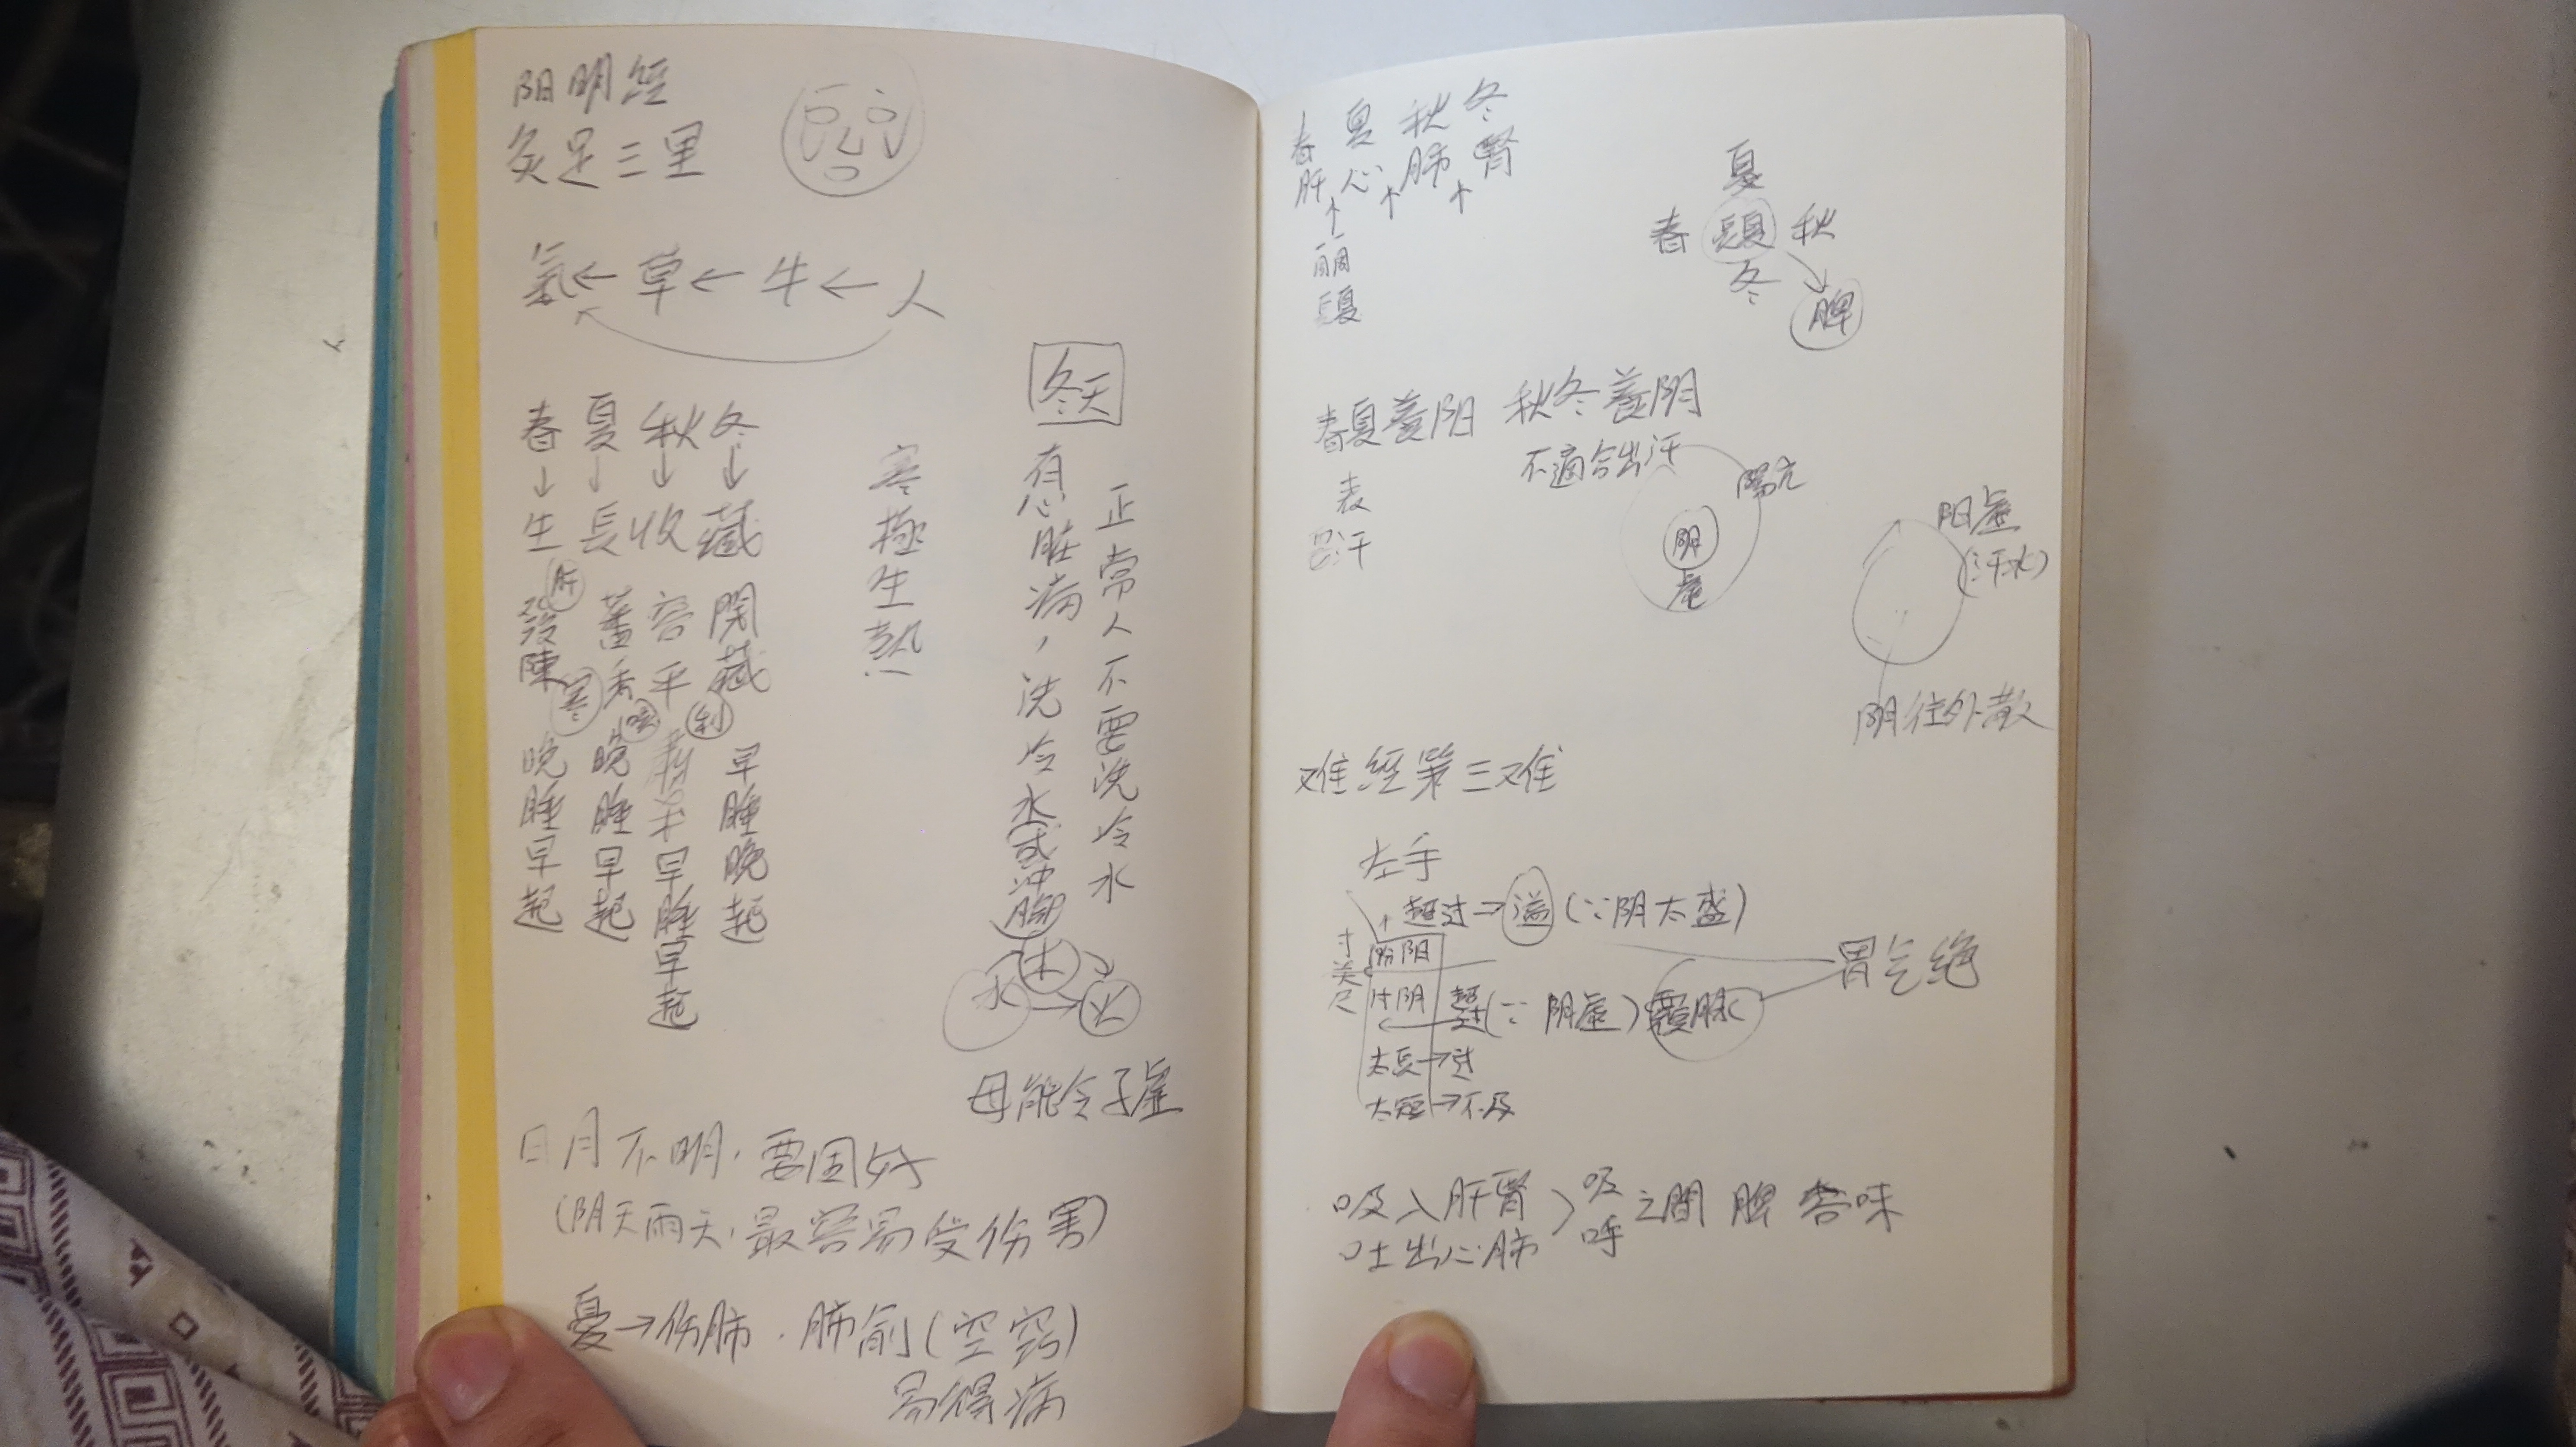 阳明经
灸足三里
氣←草←牛←人
春 夏 秋 冬
↓ ↓ ↓ ↓
生 長 收 藏
肝
發陳 蕃秀 容平 閉藏
寒
利
晚睡早起
晚睡早起
早睡早起
早睡晚起
寒極生熱
冬天
正常人不要洗冷水
有心脏病，洗冷水或冲腳
水 木 火
母能令子虛
日月不明，要固好
(阴天雨天，最容易受伤害)
憂→伤肺．肺俞(空窍)
易得病
春 夏 秋 冬
肝 心 肺 腎
↑ ↑ ↑
夏
春 長夏 秋
冬
脾
春夏養阳 秋冬養阴
不適合出汗
表
汗
陽亢
阴
虛
阳虛
(汗水)
阴往外散
难經第三难
左手
超过→溢(∵阴太盛)
寸 关 尺
阳
阴
(∵阴虛)覆脉
胃气绝
太長→过
太短→不及
吸入肝腎
吐出心肺
吸 呼 之間 脾 谷味